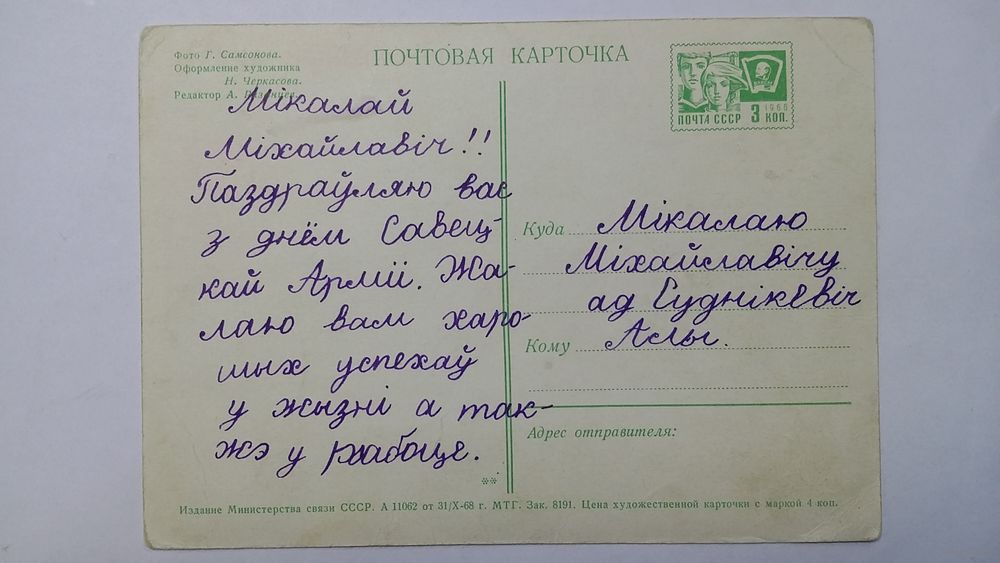 Фото Г. Самсонова.
Оформление художника
Н. Черкасова.
Редактор А.
ПОЧТОВАЯ КАРТОЧКА
ПОЧТА СССР 3 КОП.
1966
Мікалай
Міхайлавіч!!
Паздраўляю вас
з днём Савец-
кай Арміі. Жа-
лаю вам харо-
шых успехаў
у жызні а так-
жэ у рабоце.
**
Куда Мікалаю
Міхайлавічу
ад Суднікевіч
Кому Аллы.
Адрес отправителя:
Издание Министерства связи СССР. А 11062 от 31/X-68 г. МТГ. Зак. 8191. Цена художественной карточки с маркой 4 коп.